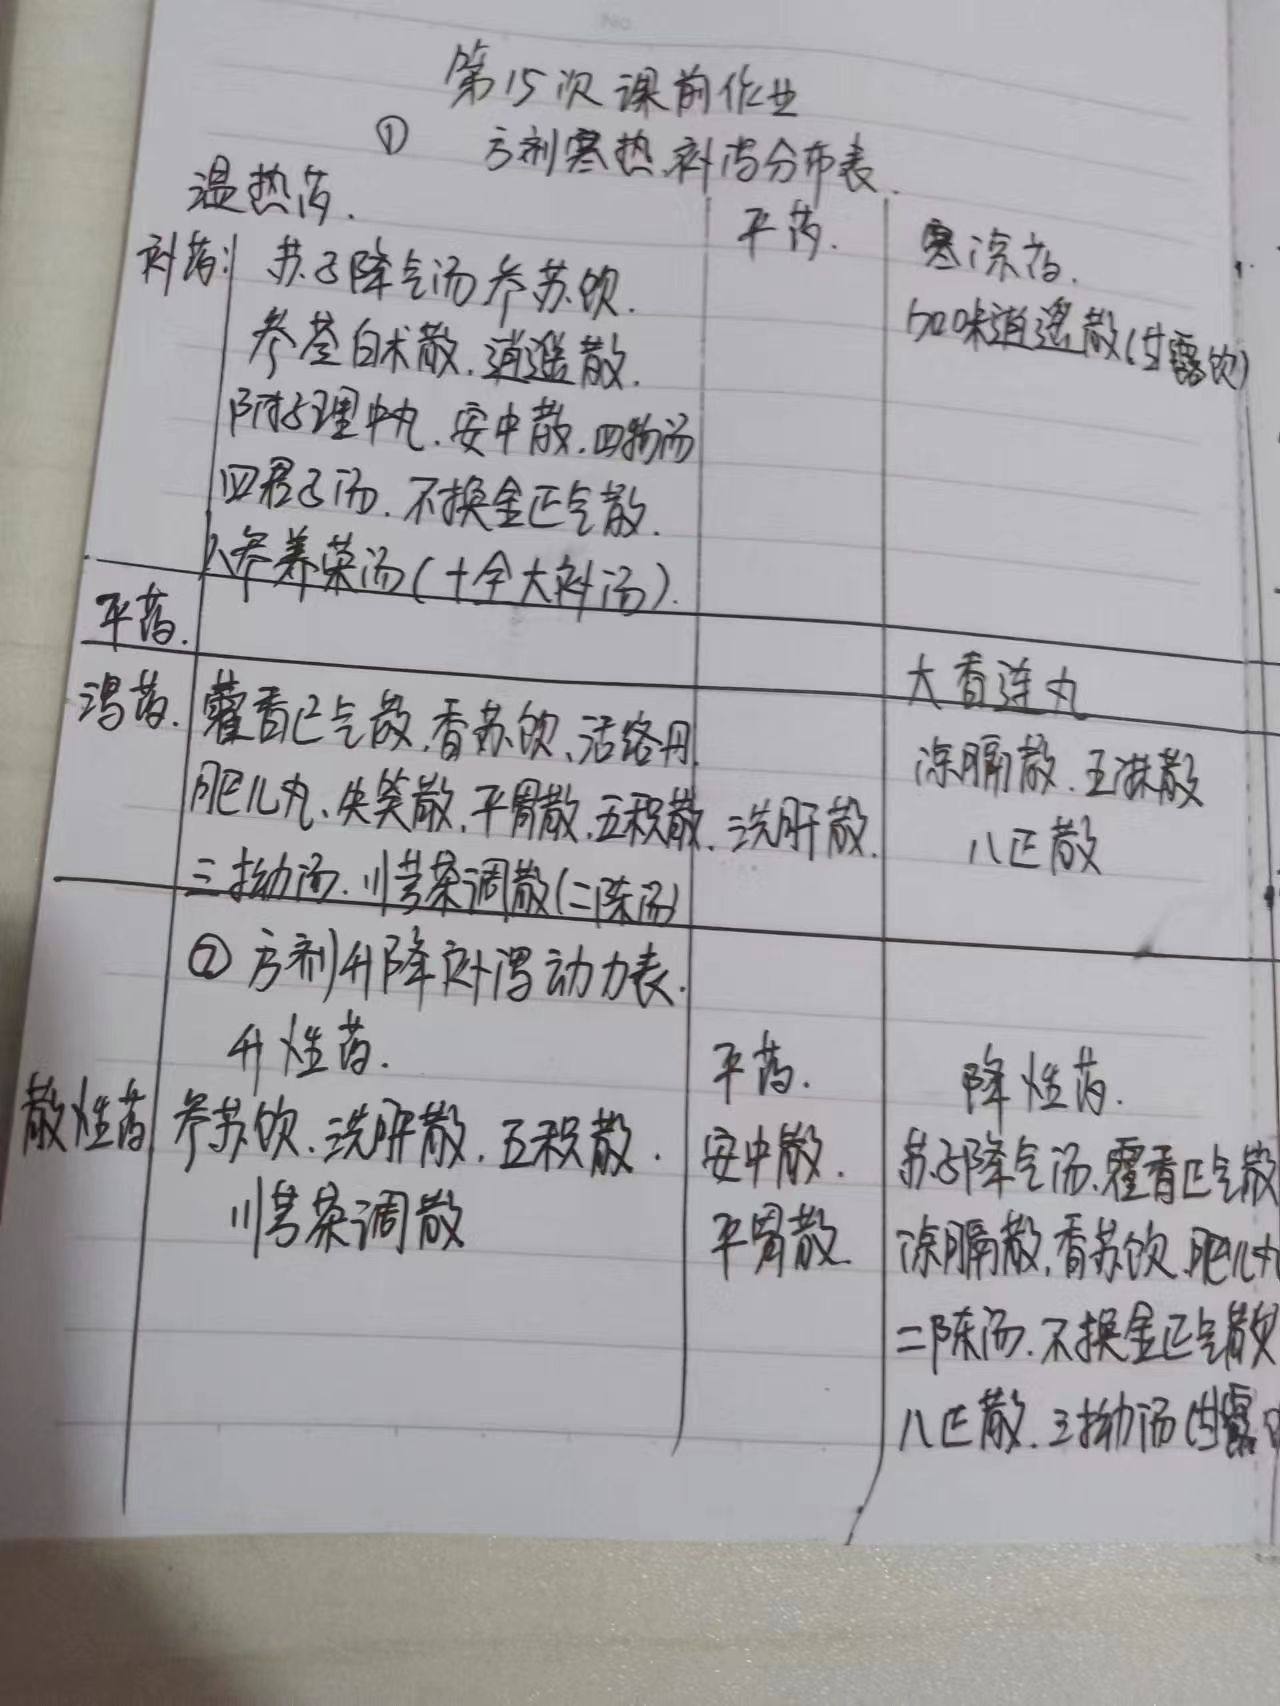 No
第15次课前作业
① 方剂寒热补泻分布表.
温热药. 平药. 寒凉药.
补药: 苏子降气汤 参苏饮. 加味逍遥散(甘露饮)
参苓白术散. 逍遥散.
附子理中丸. 安中散. 四物汤
四君子汤. 不换金正气散.
人参养荣汤(十全大补汤).
平药. 大香连丸
泻药. 藿香正气散, 香苏饮、活络丹 凉膈散. 五淋散
肥儿丸、失笑散, 平胃散, 五积散. 洗肝散. 八正散
三拗汤. 川芎茶调散(二陈汤)
② 方剂升降补泻动力表.
升性药. 平药. 降性药.
散性药 参苏饮、洗肝散. 五积散. 安中散. 苏子降气汤. 藿香正气散
川芎茶调散 平胃散. 凉膈散, 香苏饮. 肥儿丸
二陈汤. 不换金正气散
八正散. 三拗汤(甘露